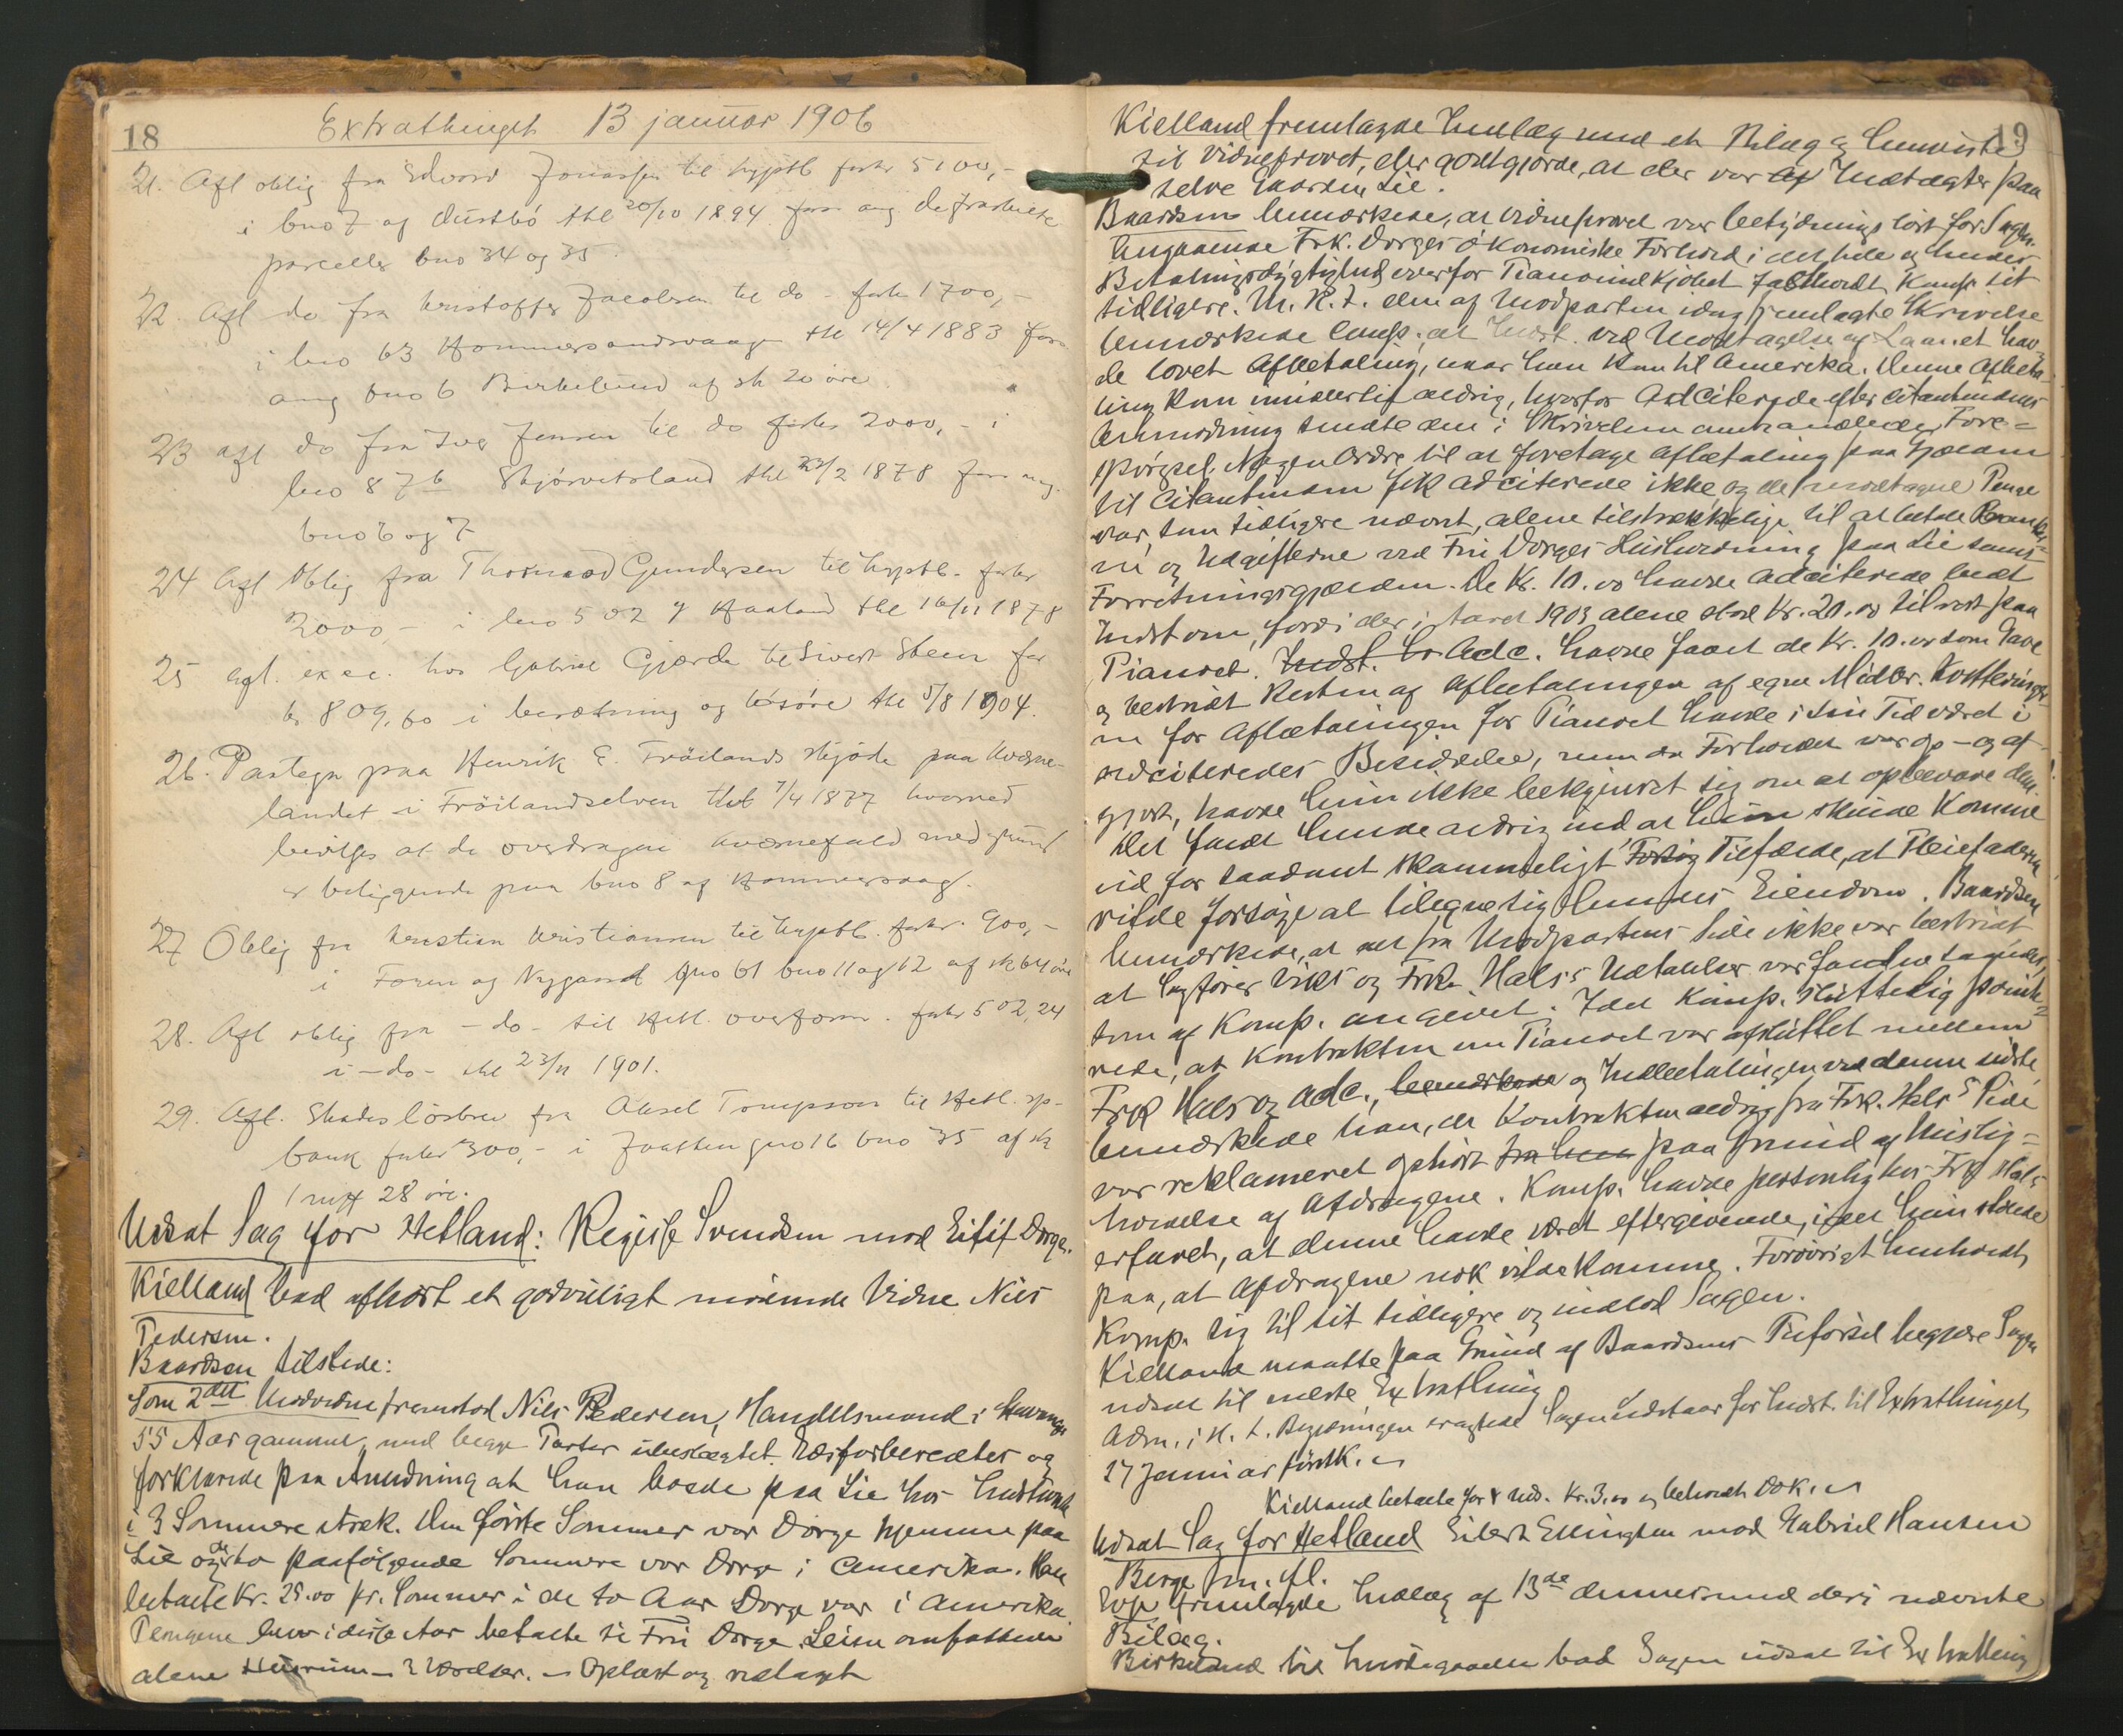 18
Extrathinget 13 januar 1906
21. Afl oblig fra Edvard Jonassen til hyptb for kr 5100,-
i bno 7 af Austbö thl 20/10 1894 fra ang de fraskilte
parceller bno 34 og 35.
22. Afl do fra Kristoffer Jacobsen til do - for kr 1700,-
i bno 63 Hommersandvaage thl 14/4 1883 for
ang bno 6 Birkelund af sk 20 öre
23 afl do fra Iver Jensen til do for kr 2000,- i
lno 87b Skjörvetsland thl 23/2 1878 for ang.
bno 6 og 7
24 Afl Oblig fra Thormod Gundersen til hyptb. for kr
2000,- i lno 502 y Haaland thl 16/11 1878
25 agt. exec. hos Gabriel Gjerde til Sivert Steen for
kr 809,60 i besætning og lösöre thl 5/8 1904.
26. Pategn paa Henrik E. Fröilands skjöde paa kværne-
landet i Fröilandselven thl 7/4 1877 hvorved
bevilges at de overdragne kværnefald med grund
er beliggende paa bno 8 af Hommersaag.
27 Oblig fra Kristian Kristiansen til hyptb. for kr. 900,-
i Foren og Nygaard gno 61 bno 11 og 12 af sk 64 öre
28. Afl oblig fra - do - til Hetl. overform. for kr 502,24
i - do - thl 23/11 1901.
29. Afl. Skadeslösbrev fra Aksel Tompson til Hetl. sp-
bank for kr 300,- i Jaatten gno 16 bno 35 af sk
1 mrk 28 öre.
Udsat Sag for Hetland: Regisse Svendsen mod Eilif Dorge.
Kielland bad afhört et godvilligt mödende Vidne Nils
Pedersen.
Baardsen tilstede:
Som 2det Modvidne fremstod Nils Pedersen, Handelsmand i Stavanger
55 Aar gammel, med begge Parter ubeslægtet. Edsforberedtes og
forklarede paa Anledning at han boede paa Lie hos Indstevnte
i 3 Sommere stræk. Den förste Sommer var Dorge hjemme paa
Lie og de to paafölgende Sommere var Dorge i Amerika. Han
betalte Kr. 25.00 pr. Sommer i de to Aar Dorge var i Amerika.
Pengene blev i disse Aar betalte til Fru Dorge. Leien omfattede
alene Husrum - 2 Værelser. - Oplæst og vedtaget
19
Kielland fremlagde Indlæg med et Bilag og henviste
til Vidneprovet, der godtgjorde, at der var af Indtægter paa
selve Gaarden Lie.
Baardsen bemærkede, at Vidneprovet var betydningslöst for Sagen.
Angaaende Frk. Dorges ökonomiske Forhold i det hele og hendes
Betalingsdygtighed overfor Pianoindkjöbet fastholdt Komp. sit
tidligere. M. H. t. den af Modparten idag fremlagte Skrivelse
bemærkede Comp. at Indst. ved Modtagelse af Laanet hav-
de lovet Afbetaling, naar han kom til Amerika. Denne Afbeta-
ling kom imidlertid aldrig, hvorfor Adciterede efter Citantindens
Anmodning sendte den i Skrivelsen omhandlede Fore-
spörgsel. Nogen Ordre til at foretage Afbetaling paa Gjælden
til Citantinden fik Adciterede ikke og de modtagne Penge
var, som tidligere nævnt, alene tilstrækkelige til at betale Renter-
ne og Udgifterne ved Fru Dorges Husholdning paa Lie samt
Forretningsgjælden. De Kr. 10.00 havde Adciterede bedt
Indst om, fordi der i Aaret 1903 alene stod Kr. 20.00 til rest paa
Pianoet. Indst. Er Adc. havde faaet de Kr. 10.00 som Gave
og bestridt Resten af Afbetalingen af egne Midler. Kvitteringer-
ne for Afbetalingen for Pianoet havde i sin Tid været i
Adciteredes Besiddelse, men da Forholdet var op- og af-
gjort, havde hun ikke bekymret sig om at opbevare dem.
Det faldt hende aldrig ind at hun skulde komme
ud for saadant skammeligt Forsög Tilfælde, at Pleiefaderen
vilde forsöge at tilegne sig hendes Eiendom. Baardsen
bemærkede, at det fra Modpartens Side ikke var bestridt
at Sagförer Vikes og Frk. Hals's Udtalelser var saaledes
som af Komp. angivet. Idet Komp. sluttelig pointe-
rede, at Kontrakten om Pianoet var afsluttet mellem
Frk Hals og Adc., bemærkede og Indbetalingen ved denne sidste,
bemærkede han, at Kontrakten aldrig fra Frk. Hals's Side
var reklameret ophört fra hen paa Grund af Mislig-
holdelse af Afdragene. Komp. havde personlig hos Frk Hals
erfaret, at denne havde været eftergivende, idet hun stolede
paa, at Afdragene nok vilde komme. Forövrigt henholdt
Komp. sig til sit tidligere og indlod Sagen.
Kielland maatte paa Grund af Baardsens Tilförsel begjære Sagen
udsat til næste Extrathing
Adm. i H. t. Begjæringen eragtede Sagen Udstaar for Indst. til Extrathinget
27 Januar förstk.
Kielland betalte for 1 Uds. Kr. 3.00 og beholdt Dok.
Udsat Sag for Hetland Eilert Ellingsen mod Gabriel Hansen
Berge m. fl.
Evje fremlagde Indlæg af 13de dennes med deri nævnte
Bilag.
Birkeland bad Sagen udsat til Extrathing